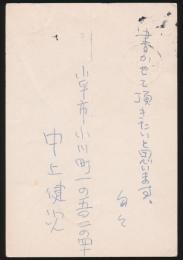 書かせて頂きたいと思います。
匆々
小平市小川町一の五〇二の四十
中上健次